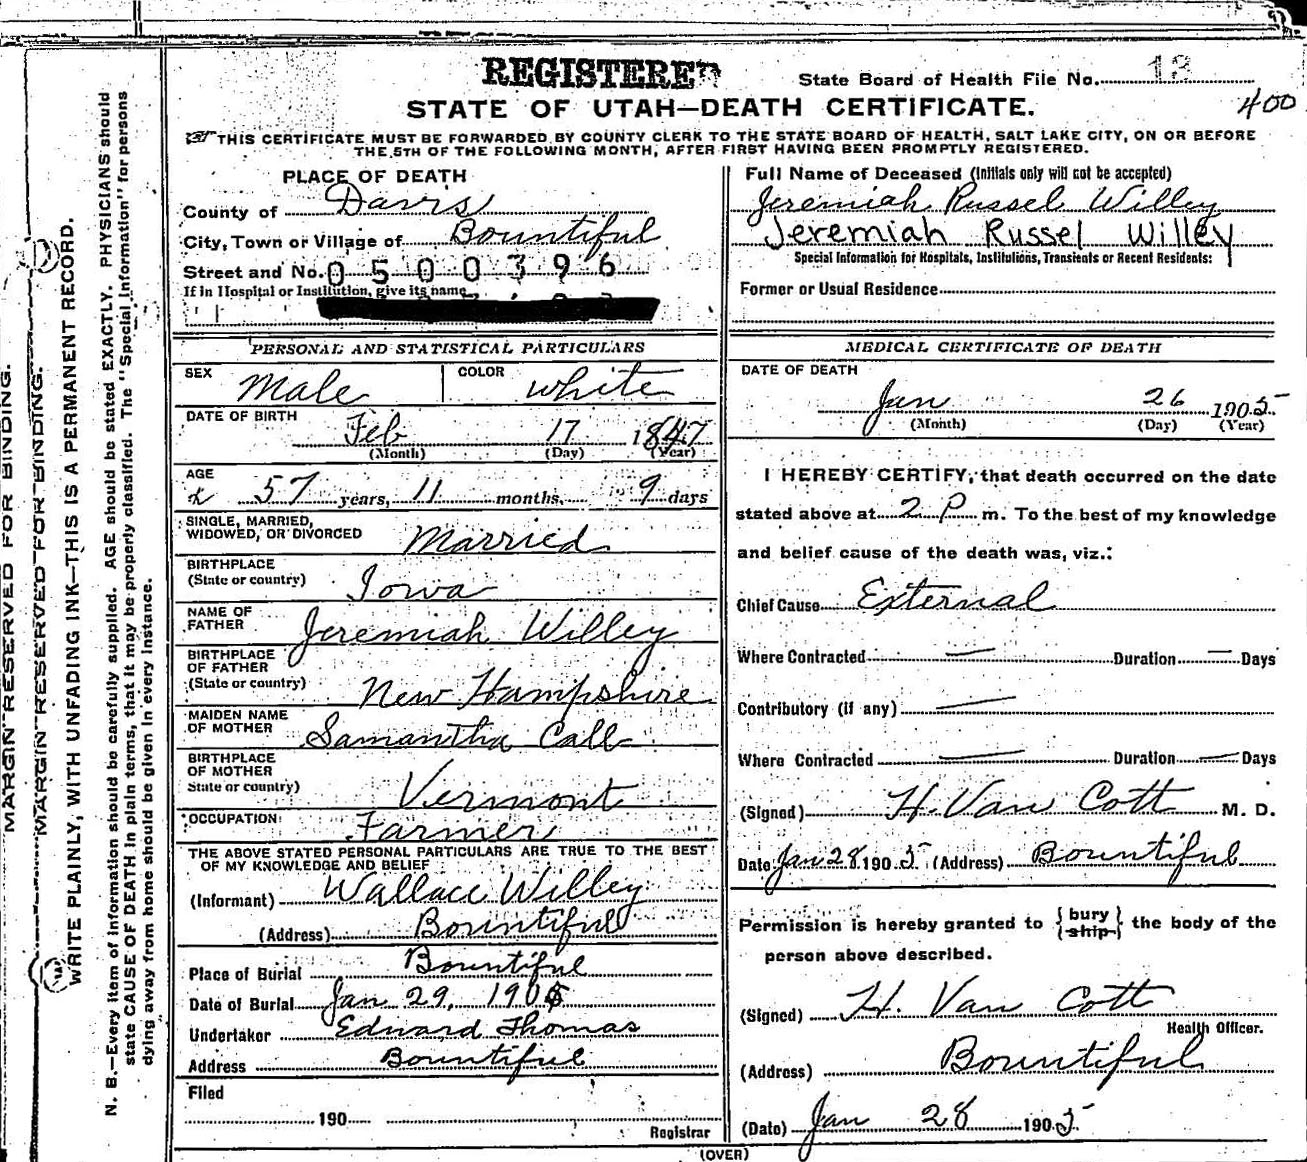 REGISTERED
State Board of Health File No. 13
400
STATE OF UTAH—DEATH CERTIFICATE.
THIS CERTIFICATE MUST BE FORWARDED BY COUNTY CLERK TO THE STATE BOARD OF HEALTH, SALT LAKE CITY, ON OR BEFORE
THE 5TH OF THE FOLLOWING MONTH, AFTER FIRST HAVING BEEN PROMPTLY REGISTERED.
PLACE OF DEATH
County of Davis
City, Town or Village of Bountiful
Street and No. 0500396
If in Hospital or Institution, give its name
Full Name of Deceased (Initials only will not be accepted)
Jeremiah Russel Willey
Jeremiah Russel Willey
Special Information for Hospitals, Institutions, Transients or Recent Residents:
Former or Usual Residence
PERSONAL AND STATISTICAL PARTICULARS
SEX Male COLOR white
DATE OF BIRTH
Feb 17 1847
(Month) (Day) (Year)
AGE
57 years, 11 months, 9 days
SINGLE, MARRIED,
WIDOWED, OR DIVORCED Married
BIRTHPLACE
(State or country) Iowa
NAME OF
FATHER Jeremiah Willey
BIRTHPLACE
OF FATHER
(State or country) New Hampshire
MAIDEN NAME
OF MOTHER Samantha Call
BIRTHPLACE
OF MOTHER
State or country) Vermont
OCCUPATION Farmer
THE ABOVE STATED PERSONAL PARTICULARS ARE TRUE TO THE BEST
OF MY KNOWLEDGE AND BELIEF
(Informant) Wallace Willey
(Address) Bountiful
Place of Burial Bountiful
Date of Burial Jan 29, 1905
Undertaker Edward Thomas
Address Bountiful
Filed
190
Registrar
MEDICAL CERTIFICATE OF DEATH
DATE OF DEATH
Jan 26 1905
(Month) (Day) (Year)
I HEREBY CERTIFY, that death occurred on the date
stated above at 2 P m. To the best of my knowledge
and belief cause of the death was, viz.:
Chief Cause External
Where Contracted — Duration — Days
Contributory (if any) —
Where Contracted — Duration — Days
(Signed) H. Van Cott M. D.
Date Jan 28 1905 (Address) Bountiful
Permission is hereby granted to {bury
ship} the body of the
person above described.
(Signed) H. Van Cott
Health Officer.
(Address) Bountiful
(Date) Jan 28 1905
(OVER)
MARGIN RESERVED FOR BINDING.
MARGIN RESERVED FOR BINDING.
WRITE PLAINLY, WITH UNFADING INK—THIS IS A PERMANENT RECORD.
N. B.—Every item of information should be carefully supplied. AGE should be stated EXACTLY. PHYSICIANS should
state CAUSE OF DEATH in plain terms, that it may be properly classified. The "Special Information" for persons
dying away from home should be given in every instance.